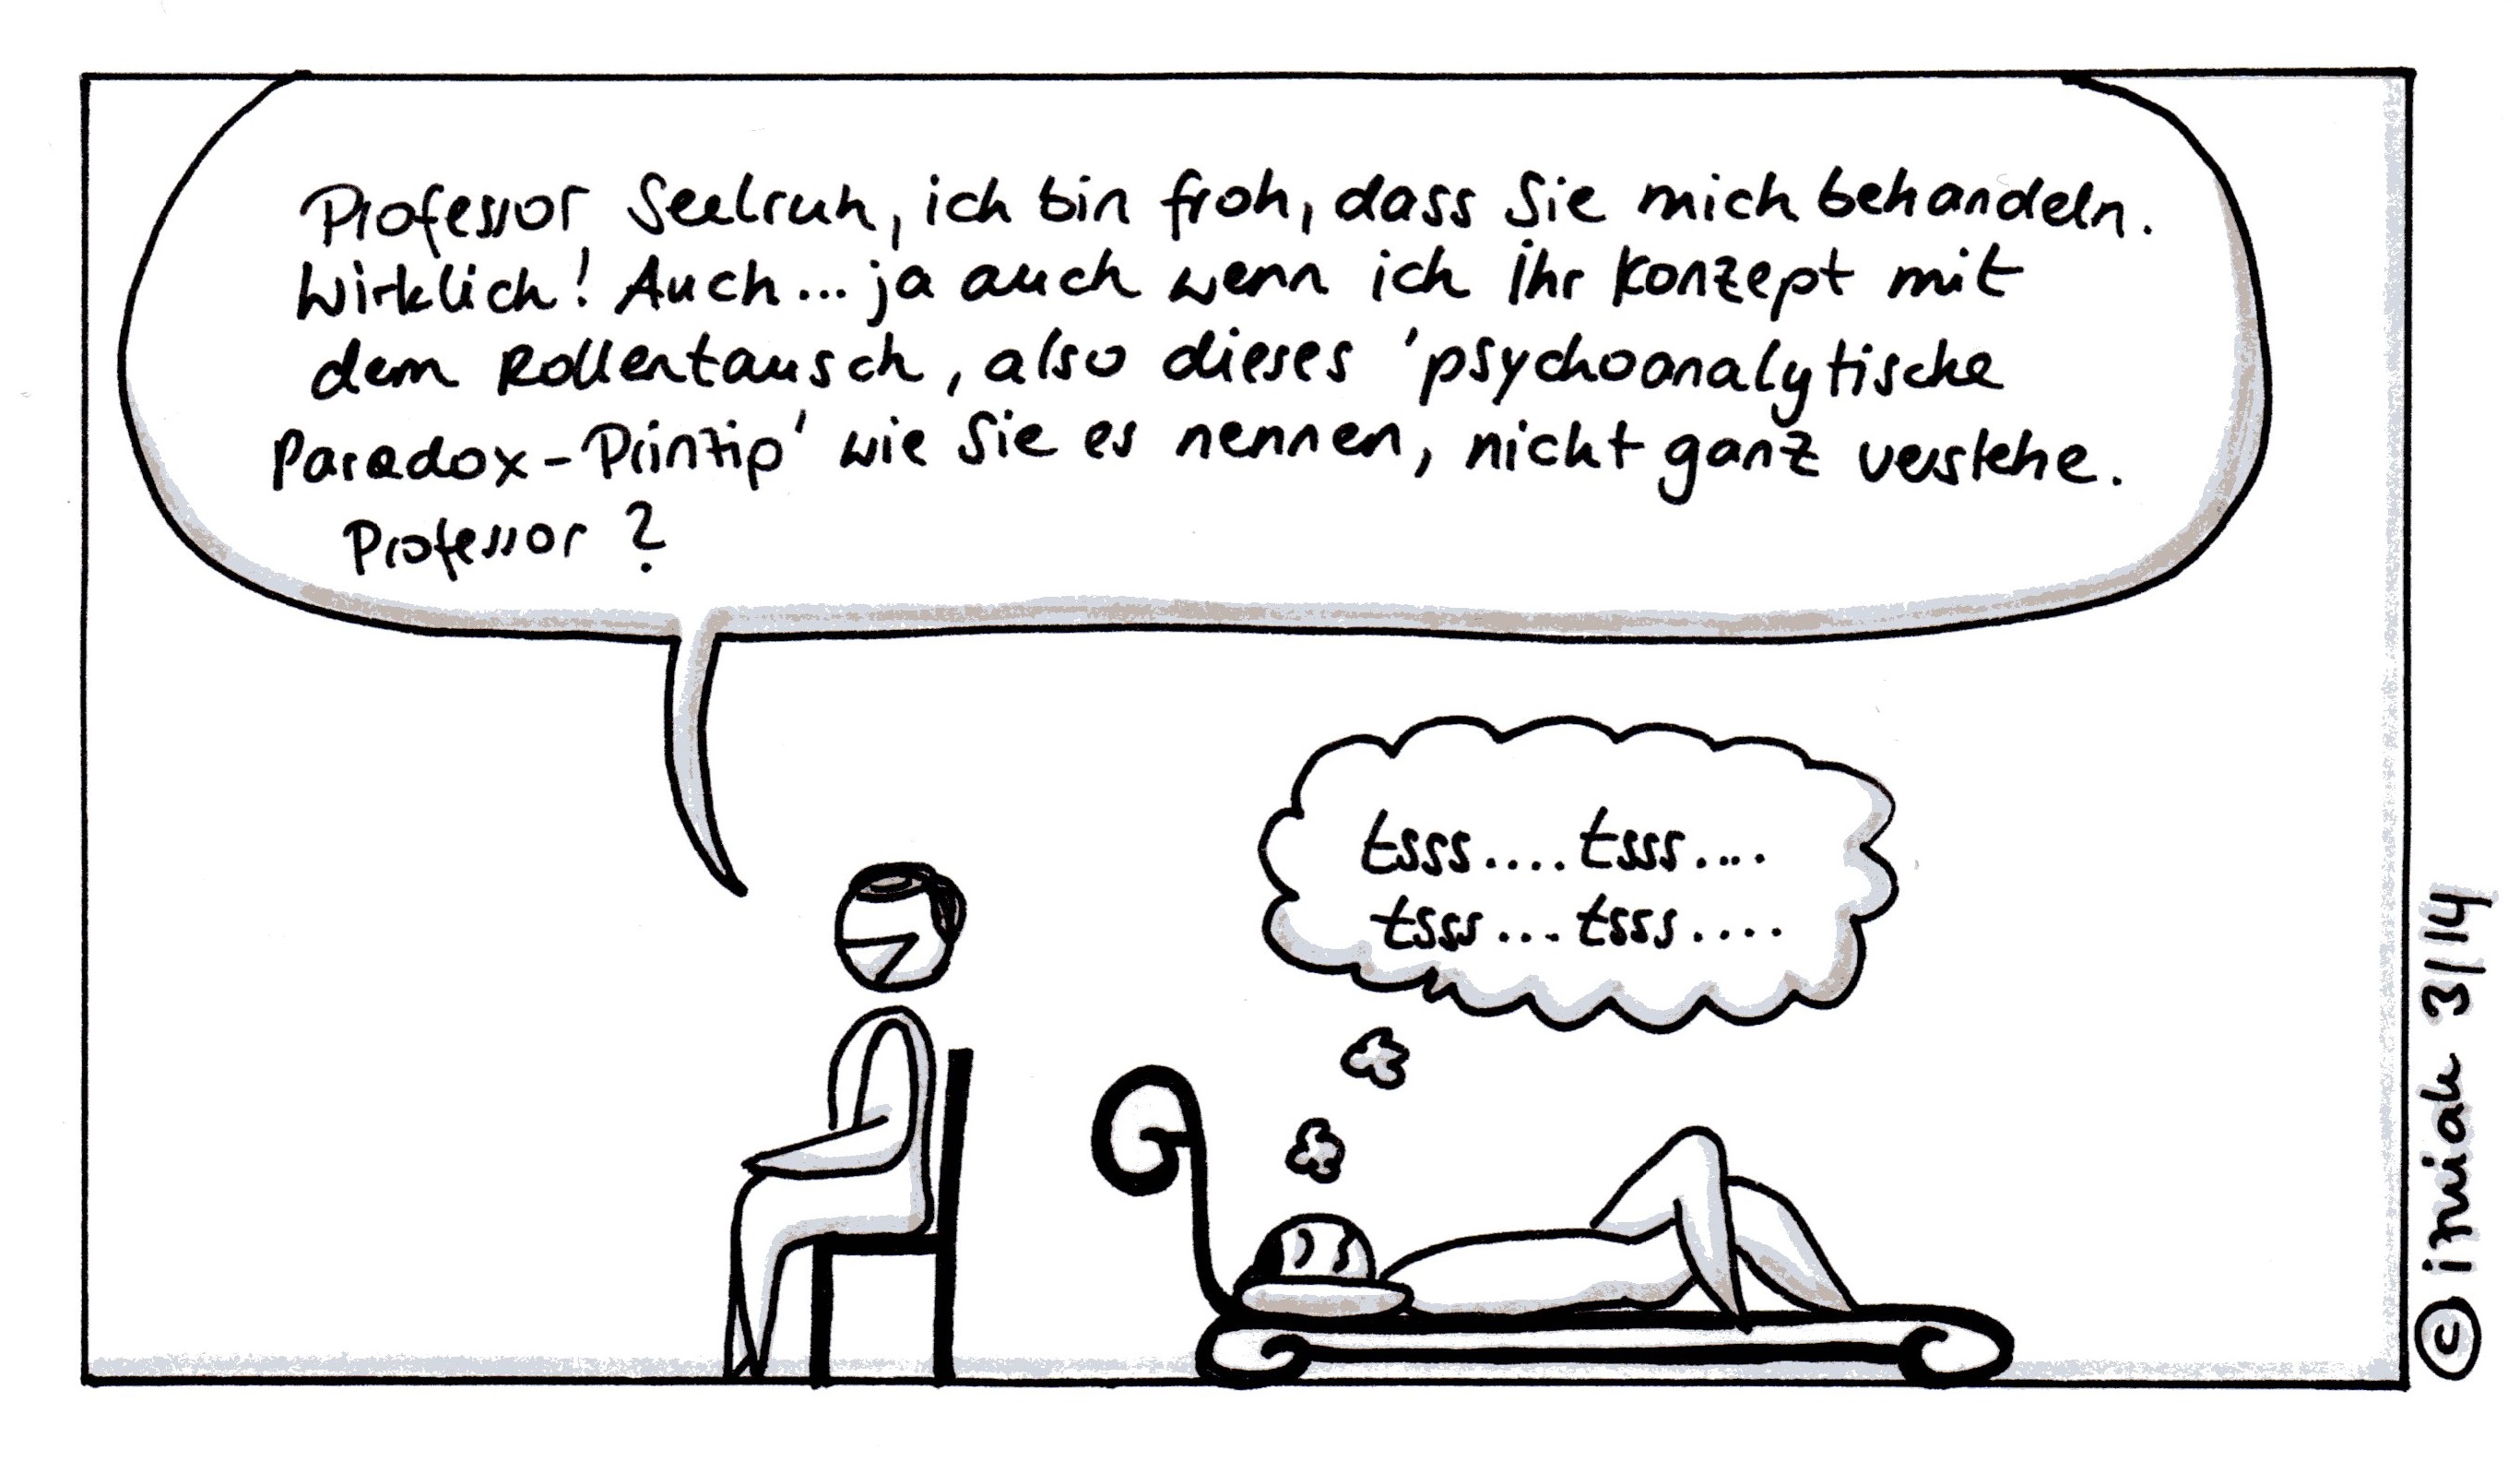 Professor Seelruh, ich bin froh, dass Sie mich behandeln.
Wirklich! Auch... ja auch wenn ich Ihr Konzept mit
dem Rollentausch, also dieses 'psychoanalytische
Paradox-Prinzip' wie Sie es nennen, nicht ganz verstehe.
Professor?
tsss.... tsss....
tsss... tsss....
© imiak 3/14